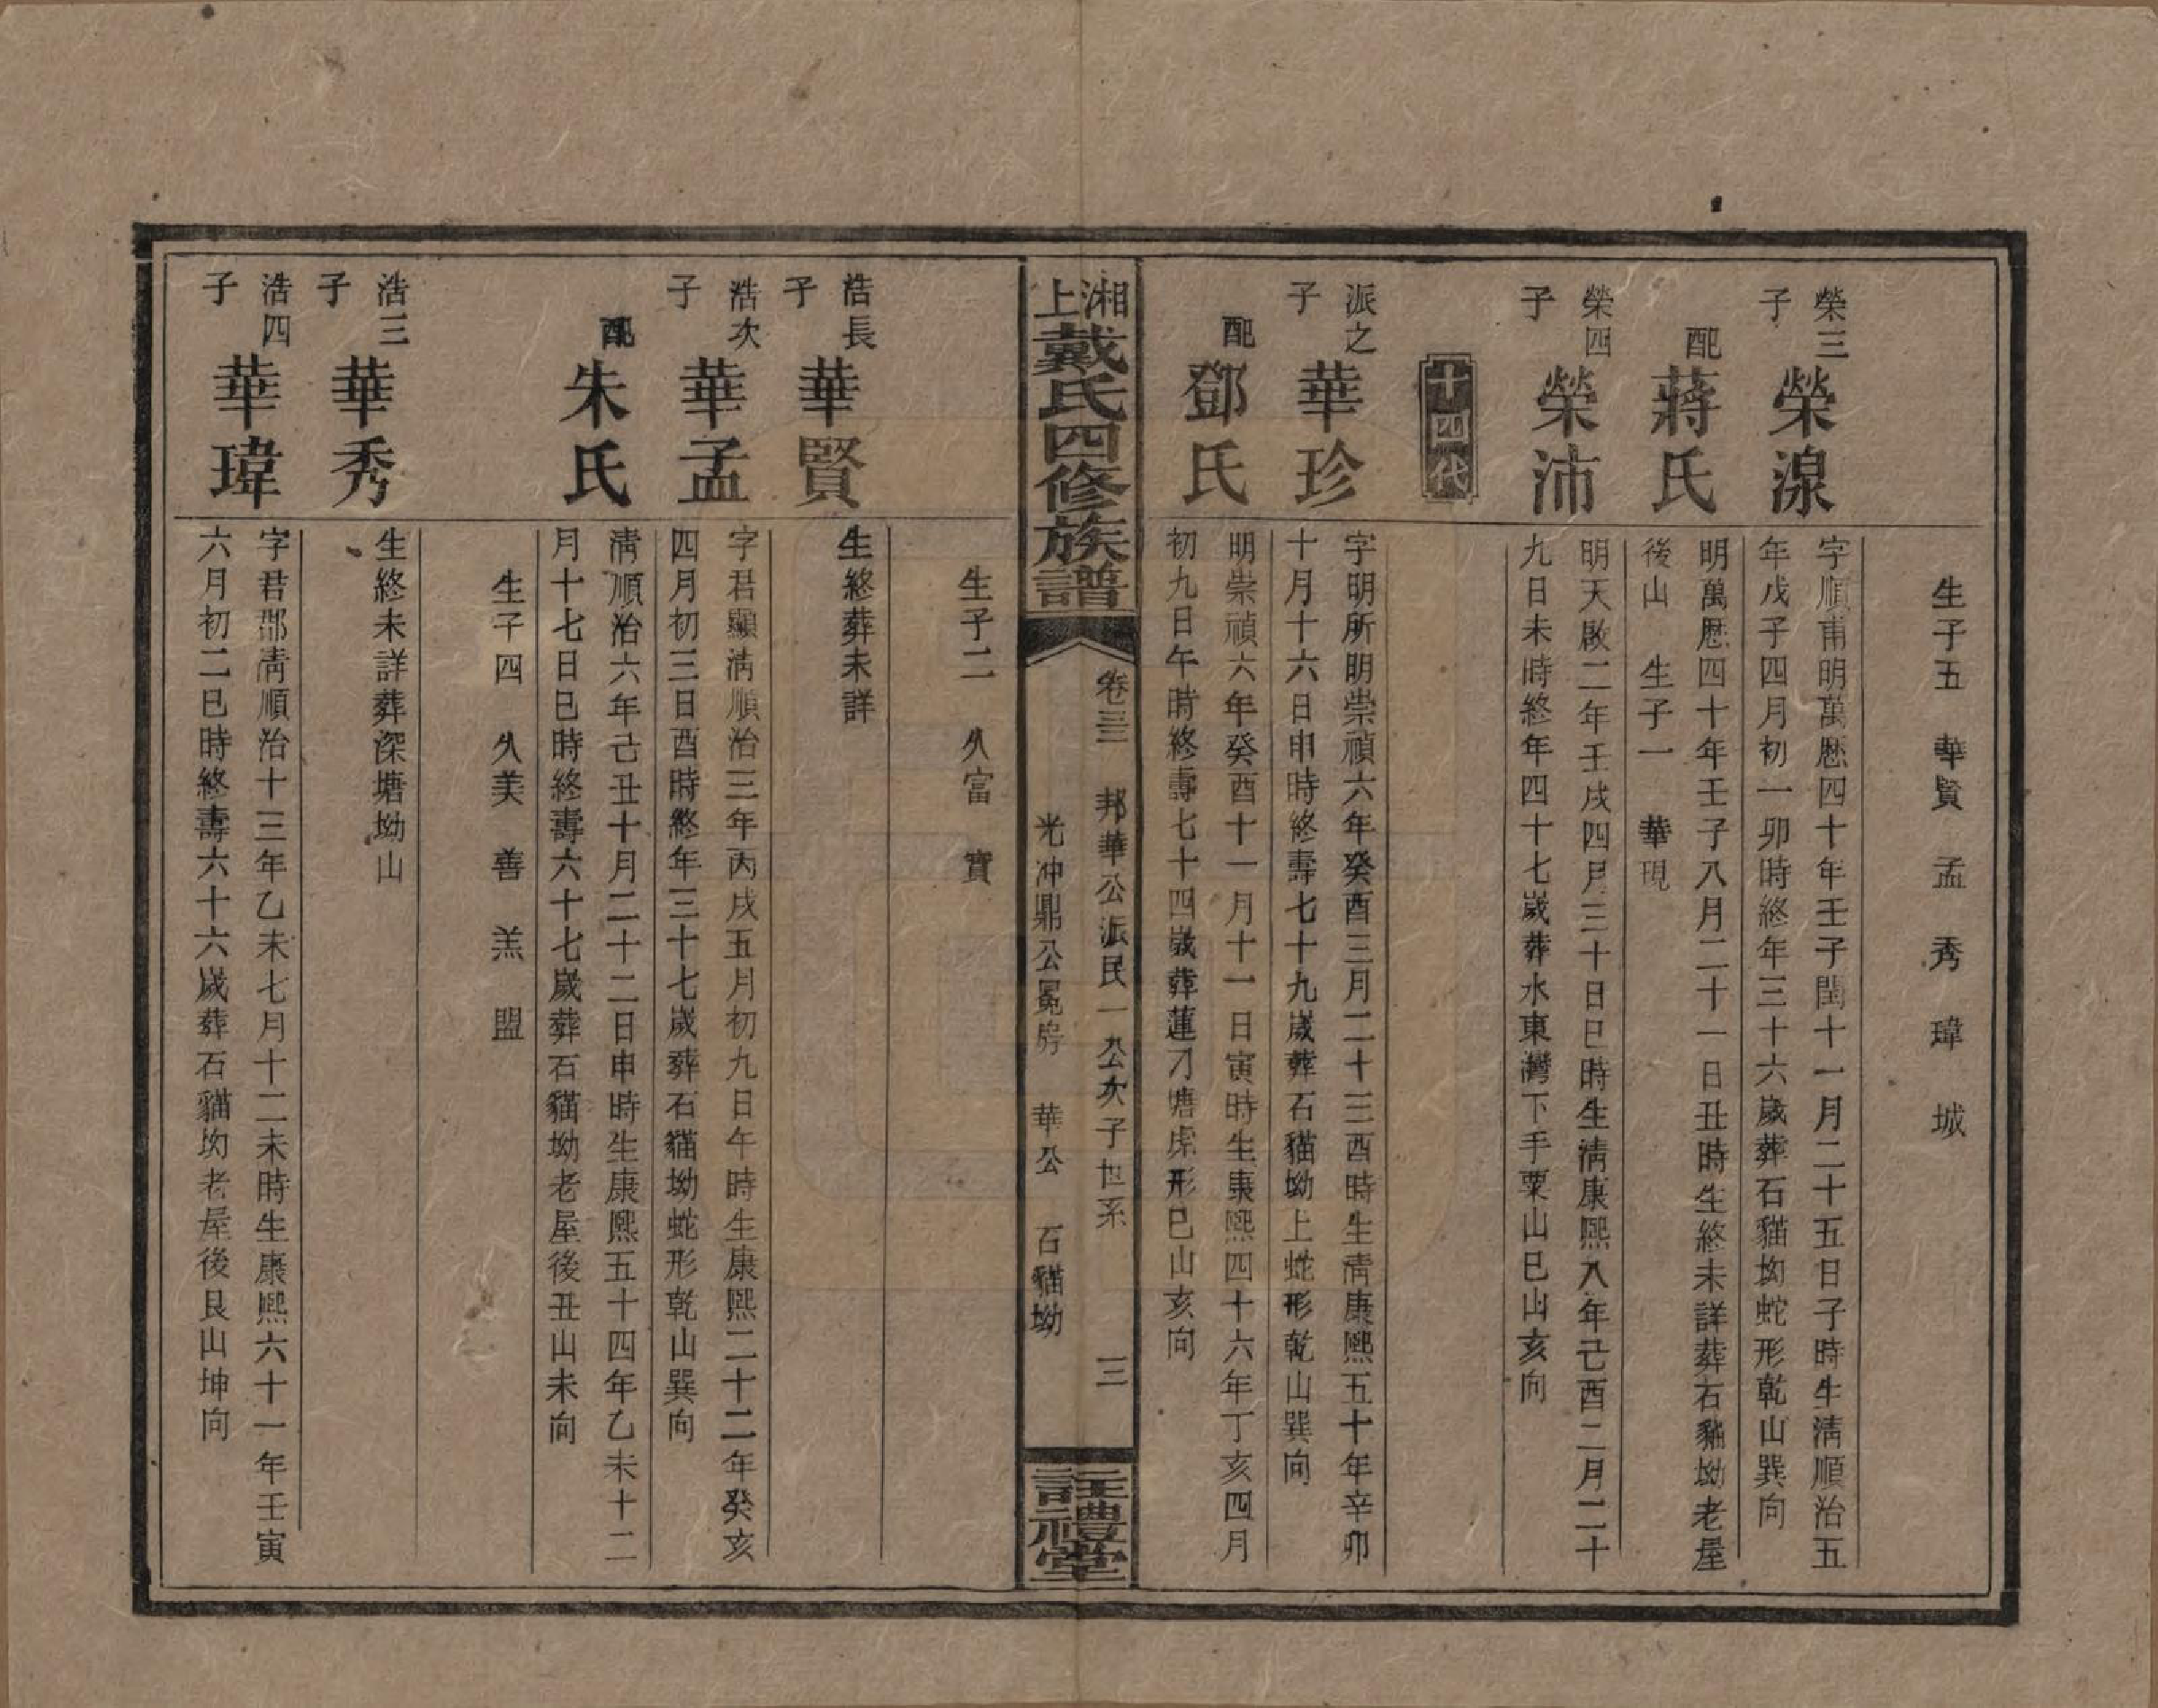 生子五　華賢　孟　秀　瑋　城
榮三子　榮湶
字順甫明萬厯四十年壬子閏十一月二十五日子時生淸順治五
年戊子四月初一卯時終年三十六歲葬石貓坳蛇形乾山巽向
配　蔣氏
明萬厯四十年壬子八月二十一日丑時生終未詳葬石貓坳老屋
後山　生子一　華現
榮四子　榮沛
明天啟二年壬戌四月三十日巳時生淸康熙八年己酉二月二十
九日未時終年四十七歲葬水東灣下手粟山巳山亥向
十四代
派之子　華珍
字明所明崇禎六年癸酉三月二十三酉時生淸康熙五十年辛卯
十月十六日申時終壽七十九歲葬石貓坳上蛇形乾山巽向
配　鄧氏
明崇禎六年癸酉十一月十一日寅時生康熙四十六年丁亥四月
初九日午時終壽七十四歲葬蓮刀塘虎形巳山亥向
湘上戴氏四修族譜
卷三　邦華公派民一公次子世系　三
光沖鼎公冕房　華公　石貓坳
註禮堂
生子二　久富　實
浩長子　華賢
生終葬未詳
浩次子　華孟
字君顯淸順治三年丙戌五月初九日午時生康熙二十二年癸亥
四月初三日酉時終年三十七歲葬石貓坳蛇形乾山巽向
配　朱氏
淸順治六年己丑十月二十二日申時生康熙五十四年乙未十二
月十七日巳時終壽六十七歲葬石貓坳老屋後丑山未向
生子四　久美　善　羔　盟
浩三子　華秀
生終未詳葬深塘坳山
浩四子　華瑋
字君郡淸順治十三年乙未七月十二未時生康熙六十一年壬寅
六月初二巳時終壽六十六歲葬石貓坳老屋後艮山坤向